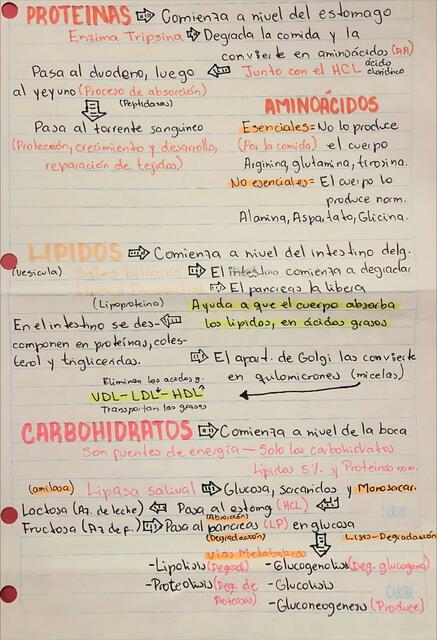 PROTEINAS ⇨ Comienza a nivel del estomago
Enzima Tripsina ⇨ Degrada la comida y la
convierte en aminoácidos (AA)
Pasa al duodeno, luego ⇦ Junto con el HCL ácido clorídrico
al yeyuno (Proceso de absorción)
(Peptidasas)
Pasa al torrente sanguíneo
(Protección, crecimiento y desarrollo,
reparación de tejidos)
AMINOÁCIDOS
Esenciales = No lo produce
(Por la comida) el cuerpo
Arginina, glutamina, tirosina.
No esenciales = El cuerpo lo
produce norm.
Alanina, Aspartato, Glicina.
LIPIDOS ⇨ Comienza a nivel del intestino delg.
(Vesicula) Sales biliares ⇨ El intestino comienza a degradar
Lipasa Pancreatica ⇨ El pancreas la libera
(Lipoproteina) Ayuda a que el cuerpo absorba
los lipidos, en ácidos grasos
En el intestino se des- ⇦
componen en proteínas, coles-
terol y trigliceridos. ⇨ El apart. de Golgi las convierte
en quilomicrones (micelas)
Eliminan los acidos g.
VDL-LDL-HDL
Transportan las grasas
CARBOHIDRATOS ⇨ Comienza a nivel de la boca
Son fuentes de energia — Solo los carbohidratos
Lipidos 5% y Proteinas nom.
(amilasa) Lipasa salival ⇨ Glucosa, sacaridos y Monosacar.
Lactosa (Az. de leche) ⇦ Pasa al estomg (HCL) ⇦
(Absorción)
Fructosa (Az de f.) ⇨ Pasa al pancreas (LP) en glucosa
(Degradación) Lisis-Degradación
Vias Metabolicas
-Lipolisis (Degrad) -Glucogenolisis (Deg. glucogeno)
-Proteolisis (Deg. de Proteinas) -Glucolisis
-Gluconeogenesis (Produce)
CARIBE
CARIBE